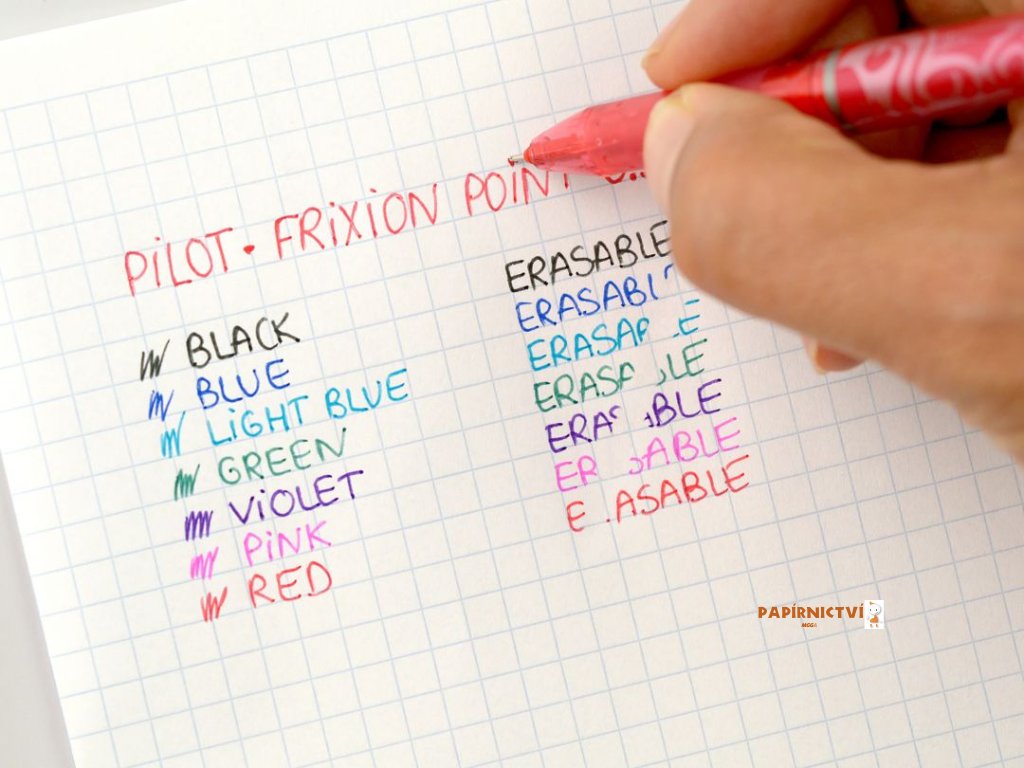 PiLOT • FRiXiON POiNT
BLACK
BLUE
LiGHT BLUE
GREEN
ViOLET
PiNK
RED
ERASABLE
ERASABL
ERASAB E
ERASA LE
ERA BLE
ER SABLE
E ASABLE
PAPÍRNICTVÍ